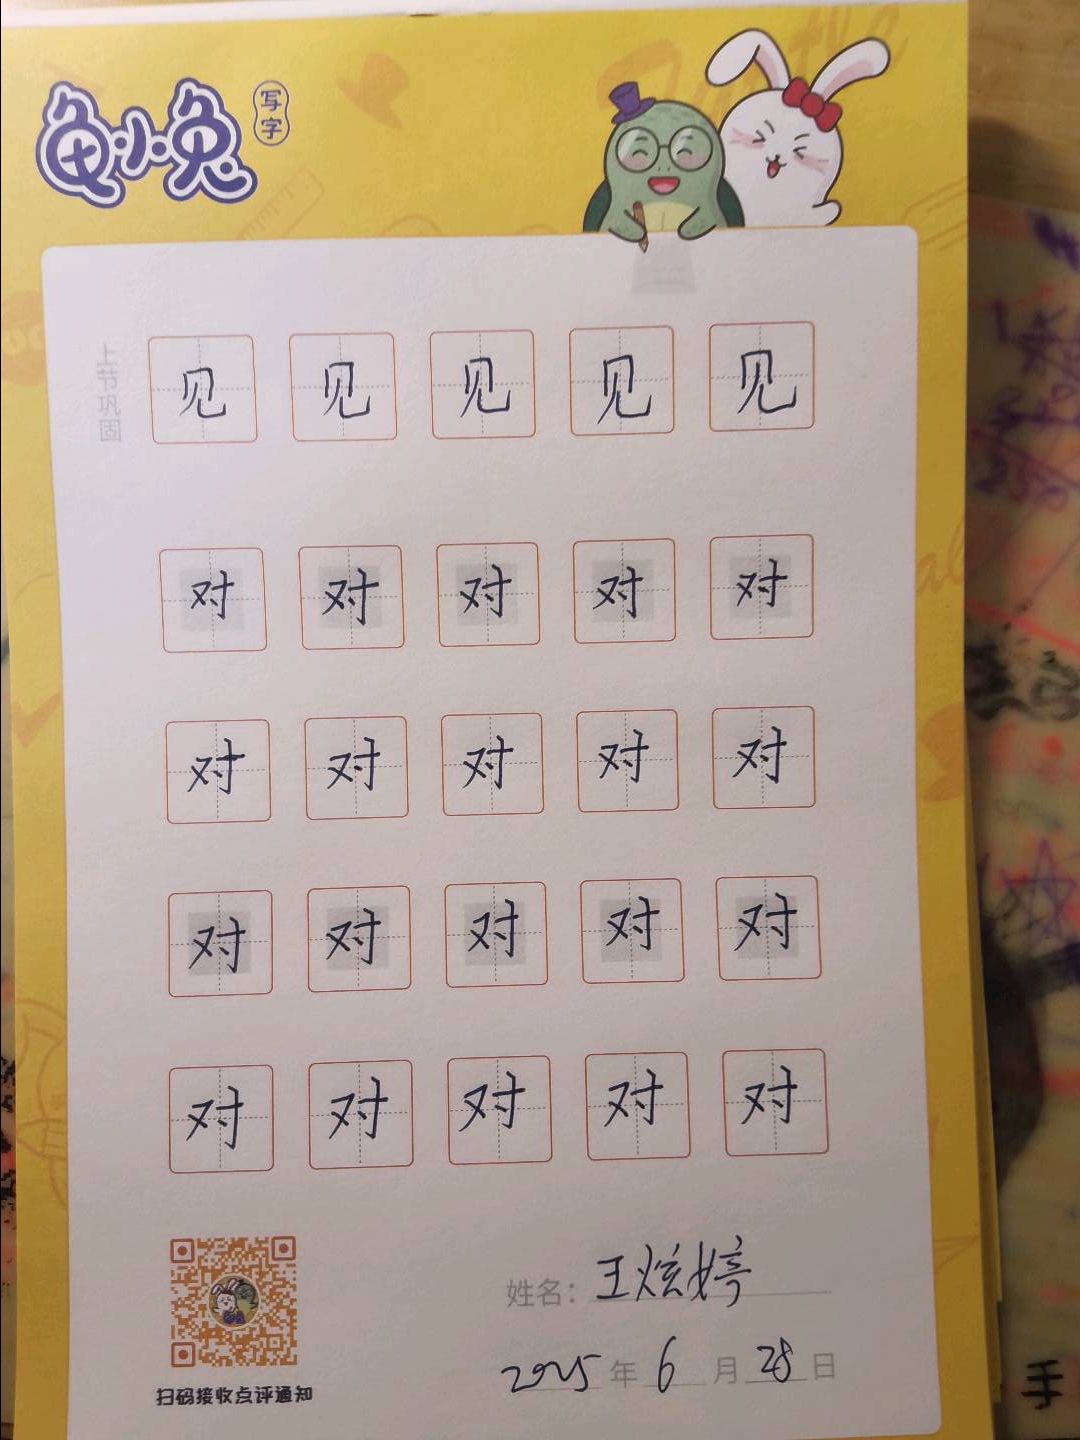 龟小兔
写字
上节巩固
见 见 见 见 见
对 对 对 对 对
对 对 对 对 对
对 对 对 对 对
对 对 对 对 对
姓名：王炫婷
2025年6月28日
扫码接收点评通知
手